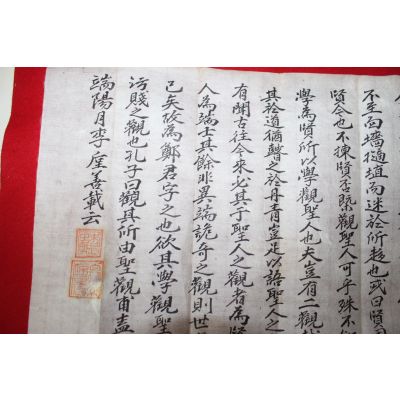 不至面墻擿埴而迷於所趍也或曰賢
賢念也不揀賢否槩觀聖人可乎殊不
學為賢所以學觀聖人也夫豈有二觀
其於道猶瞽之於丹青豈足以語聖人之
有聞古往今來必其于聖人之觀者為賢
人為端士其餘非異端詭奇之觀則世
已矣故為鄭君字之也欲其學觀聖
汚賤之觀也孔子曰觀其所由聖觀甫盍
端陽月李座善載云